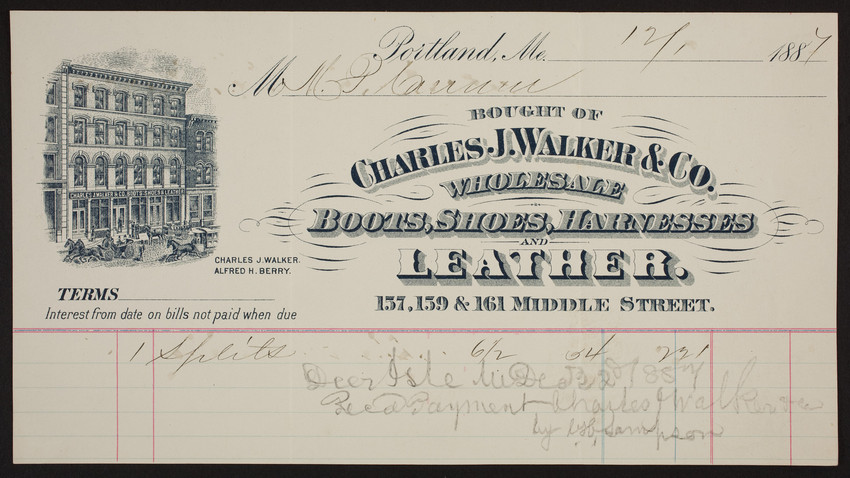 Portland, Me. 12/1 1887
M M. P.
BOUGHT OF
CHARLES J. WALKER & CO.
WHOLESALE
BOOTS, SHOES, HARNESSES
AND
LEATHER.
157, 159 & 161 MIDDLE STREET.
CHARLES J. WALKER & CO. BOOTS, SHOES & LEATHER
CHARLES J. WALKER.
ALFRED H. BERRY.
TERMS
Interest from date on bills not paid when due
1 Splits 6 1/2 34 221
Deer Isle Me Dec 1887
Recd Payment Charles J Walker & Co
by Sampson